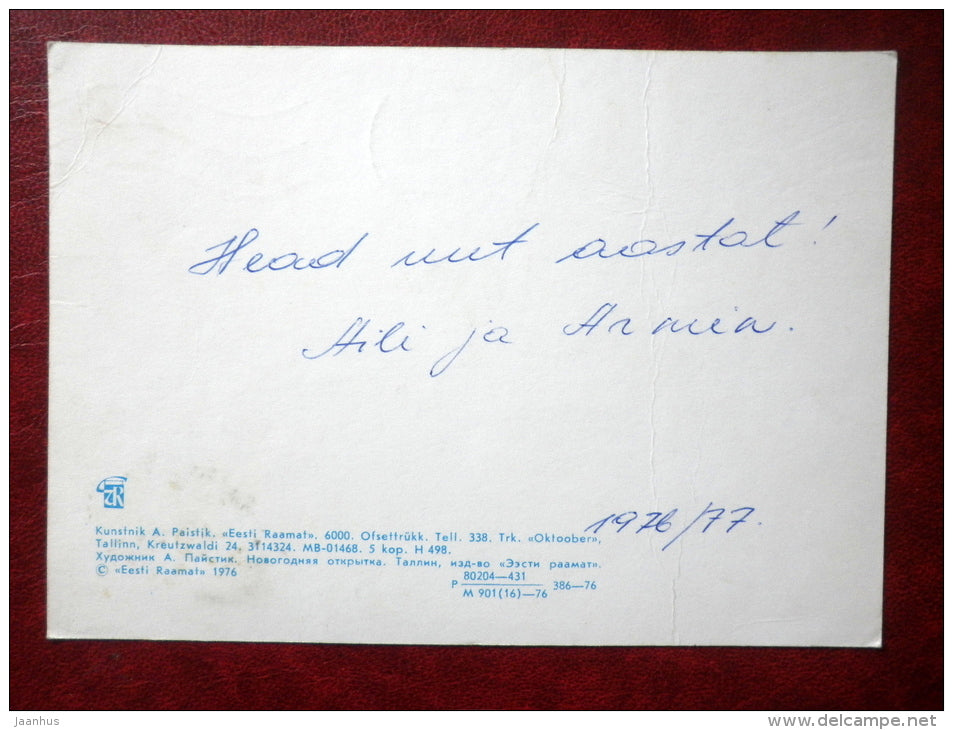 Head uut aastat!
Aili ja Armin.
1976/77.
Kunstnik A. Paistik. «Eesti Raamat». 6000. Ofsettrükk. Tell. 338. Trk. «Oktoober»,
Tallinn, Kreutzwaldi 24, 3114324. MB-01468. 5 kop. H 498.
Художник А. Пайстик. Новогодняя открытка. Таллин, изд-во «Ээсти раамат».
© «Eesti Raamat» 1976
P 80204—431 386—76
M 901(16)—76
jaanhus
www.delcampe.net